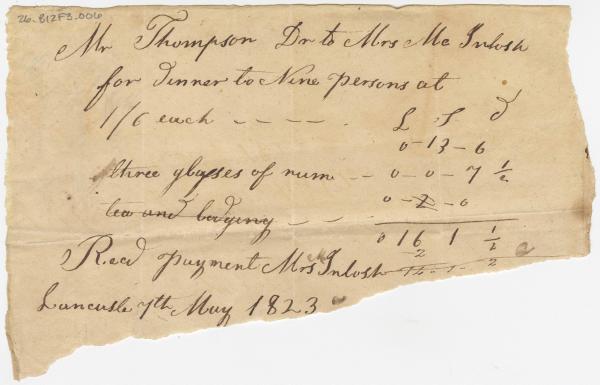 26-B12F3.006
Mr Thompson Dr to Mrs Mc Intosh
for dinner to Nine persons at
1/6 each - - - - . £ S d
0 - 13 - 6
three glasses of rum - - 0 - 0 - 7 ½
tea and lodging - - 0 - 2 - 0
0 16 1 ½
2
Recd payment Mrs McIntosh 14 - 1 - ½
Lancaste 7th May 1823